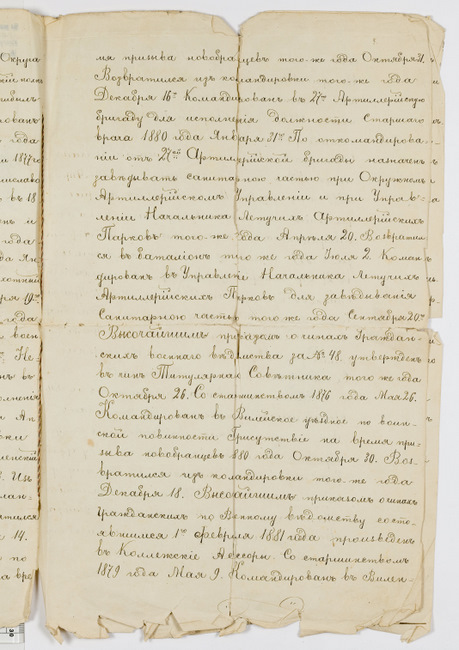 мя призыва новобранцевъ того-же года Октября 31.
Возвратился изъ командировки того-же года
Декабря 16го Командированъ въ 27ю Артиллерійскую
бригаду для исполненія должности Старшаго
врача 1880 года Января 21го По откомандирова-
ніи отъ 27ой Артиллерійской бригады назначенъ
завѣдывать санитарною частью при Окружномъ
Артиллерійскомъ Управленіи и при Управ-
леніи Начальника Летучихъ Артиллерійскихъ
Парковъ того-же года Апрѣля 20. Возврати
ся въ баталіонъ того же года Іюля 2. Коман
дированъ въ Управленіе Начальника Летучихъ
Артиллерійскихъ Парковъ для завѣдыванія
Санитарною частью того же года Сентября 20го
Высочайшимъ приказомъ о чинахъ Граждан-
скихъ военнаго вѣдомства за № 48. утвержденъ
въ чинѣ Титулярнаго Совѣтника того же года
Октября 26. Со старшинствомъ 1876 года Мая 26.
Командированъ въ Вилейское уѣздное по воин-
ской повинности Присутствіе на время при-
зыва новобранцевъ 880 года Октября 30. Воз-
вратился изъ командировки того-же года
Декабря 18. Высочайшимъ приказомъ о чинахъ
Гражданскихъ по Военному вѣдомству состо-
явшимся 1го февраля 1881 года произведенъ
въ Коллежскіе Ассесоры. Со старшинствомъ
1879 года Мая 9. Командированъ въ Вилен-